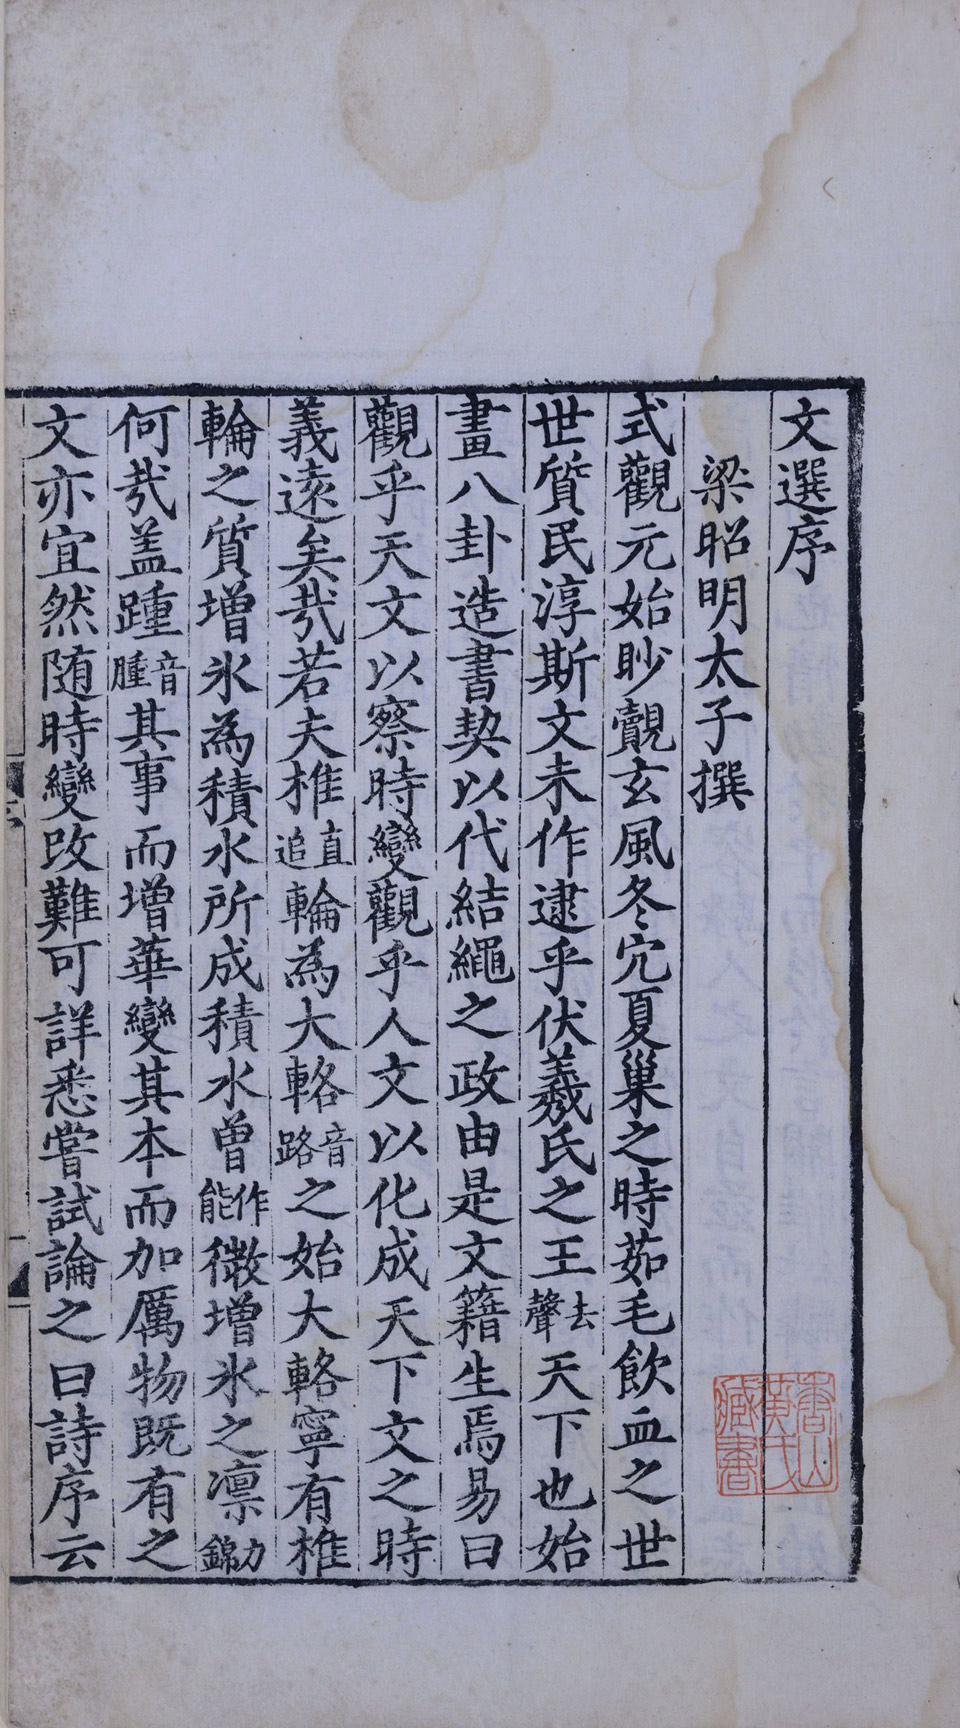 文選序
梁昭明太子撰
式觀元始眇覿玄風冬穴夏巢之時茹毛飲血之世
世質民淳斯文未作逮乎伏羲氏之王去聲天下也始
畫八卦造書契以代結繩之政由是文籍生焉易曰
觀乎天文以察時變觀乎人文以化成天下文之時
義遠矣哉若夫椎直追輪為大輅音路之始大輅寧有椎
輪之質增氷為積水所成積水曾作能微增氷之凛力錦
何哉盖踵音腫其事而增華變其本而加厲物既有之
文亦宜然随時變改難可詳悉嘗試論之曰詩序云
書山
黄氏
藏書